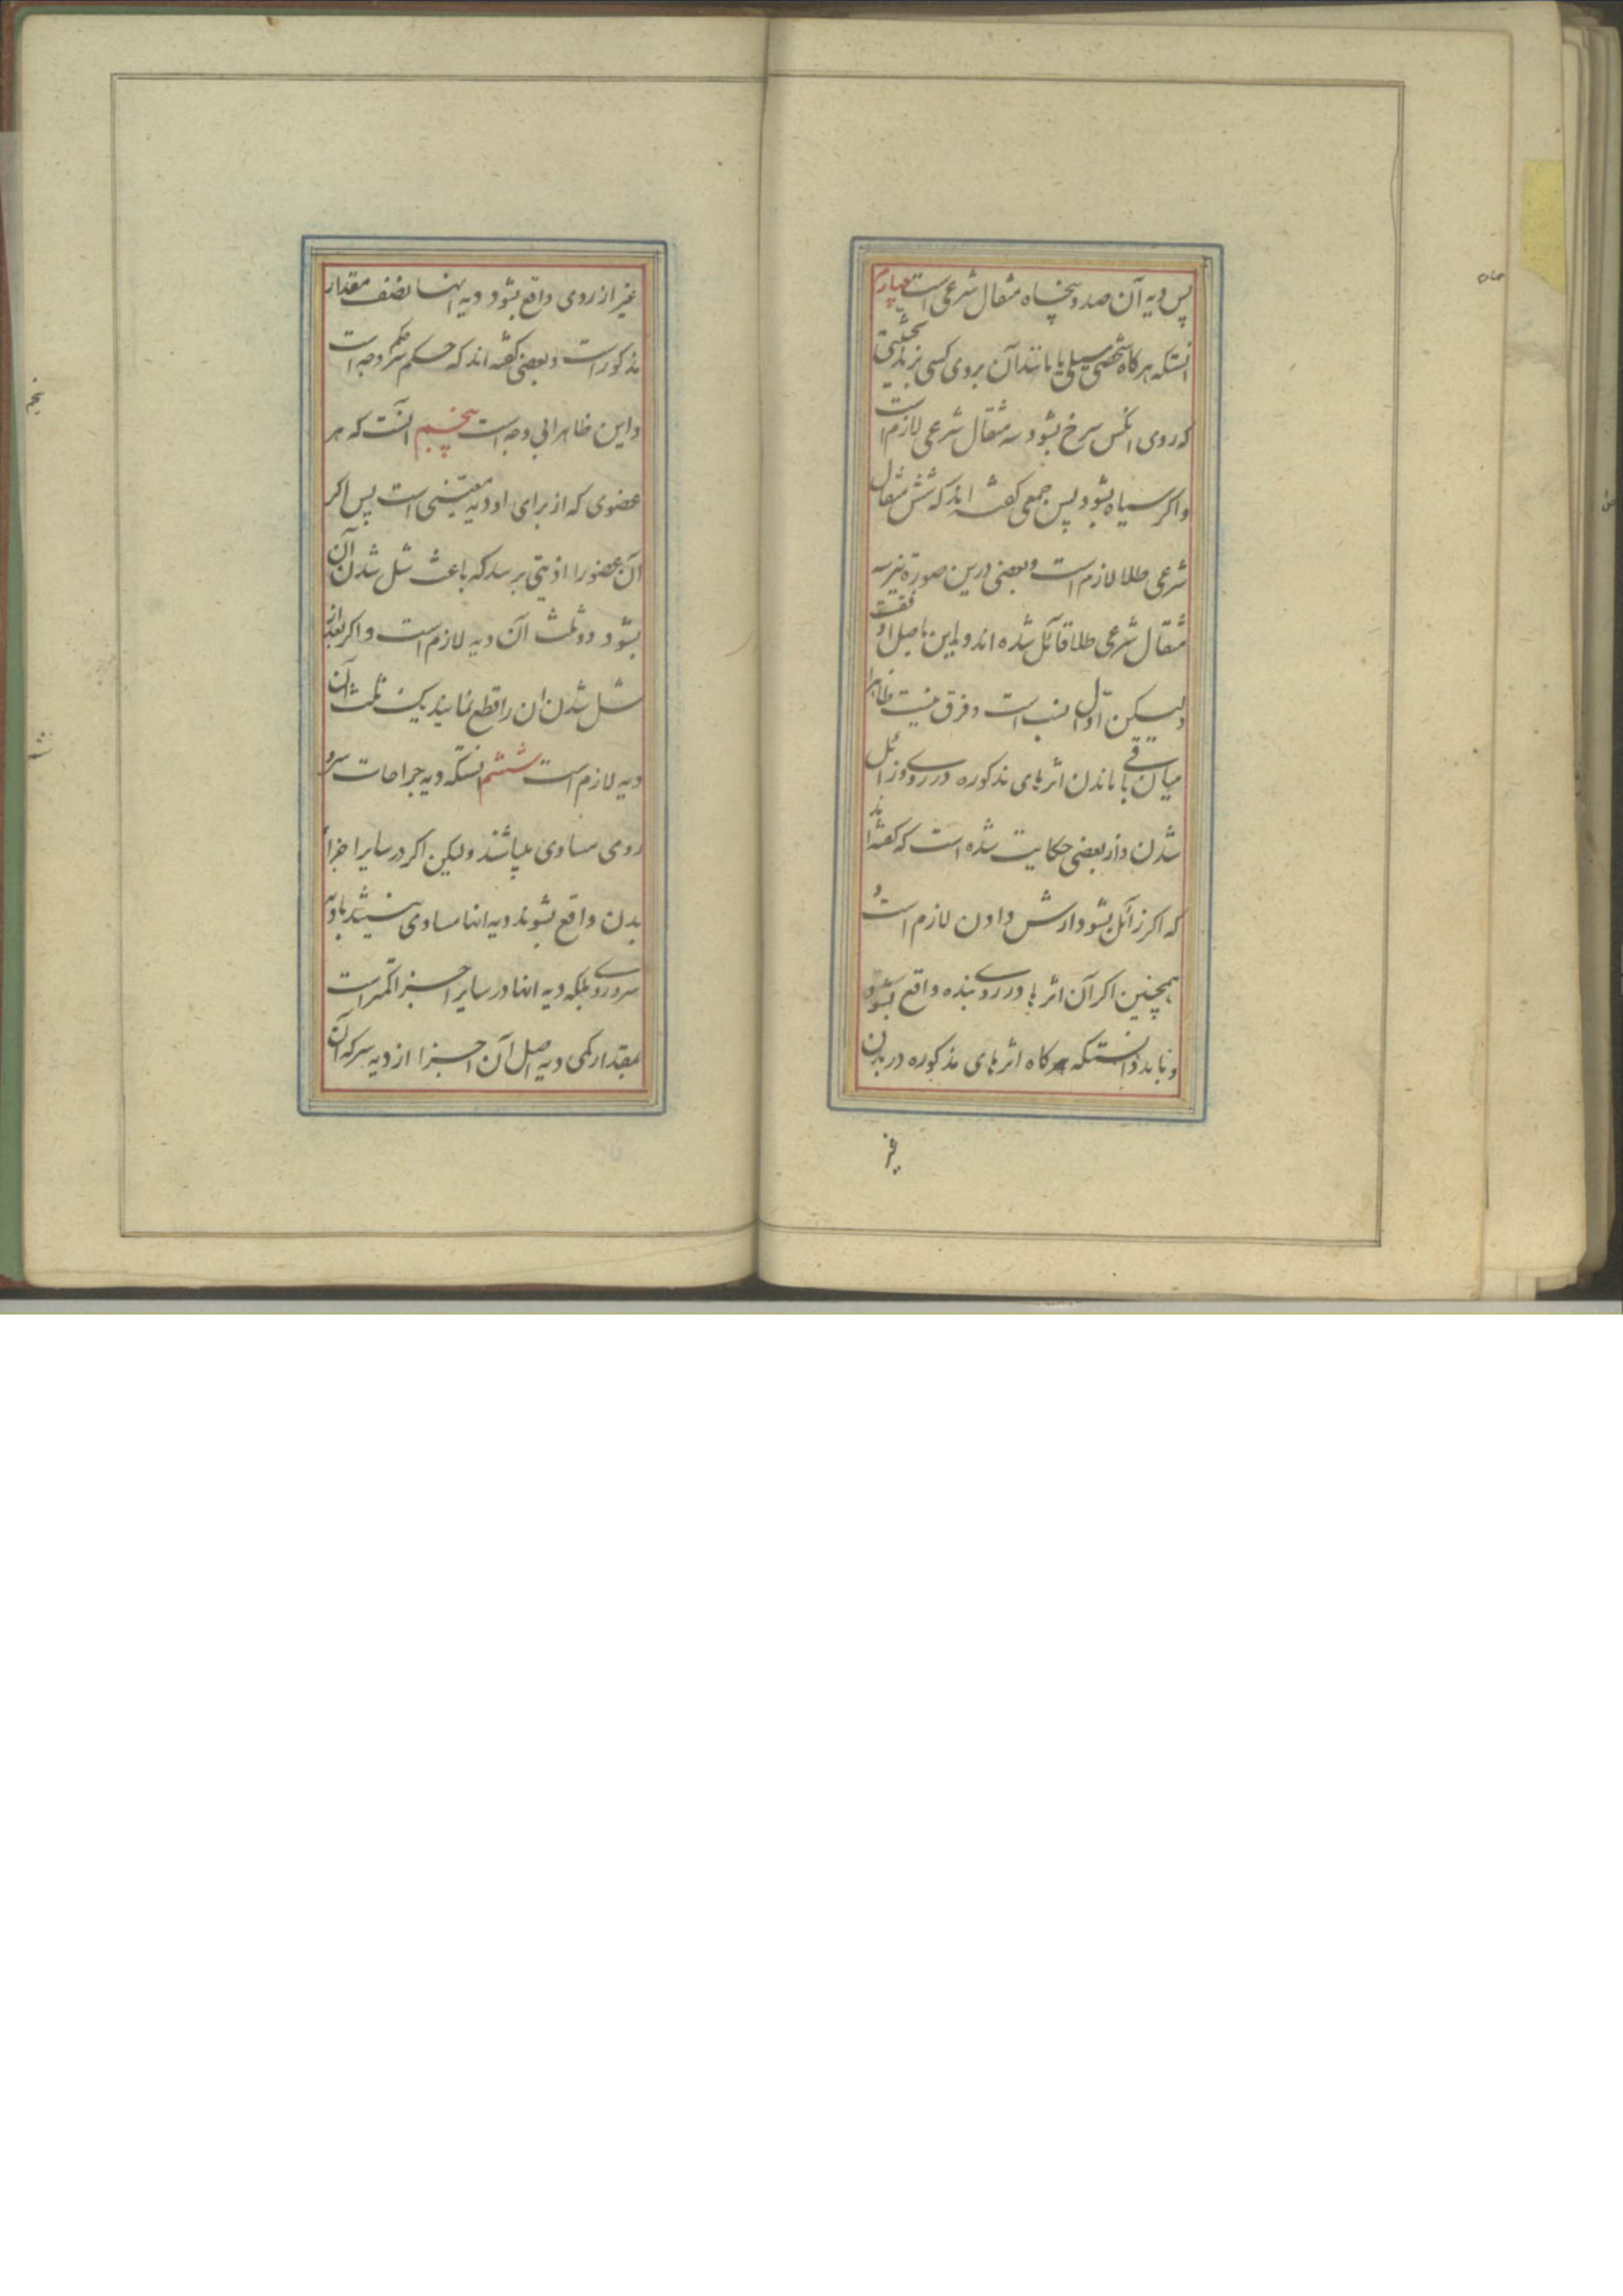 پس دیه آن صد و پنجاه مثقال شرعی است چهارم
آنستکه هرگاه شخصی سیلی یا مانند آن بروی کسی بزند بحیثیتی
که روی آنکس سرخ بشود سه مثقال شرعی لازم است
و اکر سیاه بشود پس جمعی کفته اند که شش مثقال
شرعی طلا لازم است و بعضی درین صورة نیز سه
مثقال شرعی طلا قائل شده اند و این باصل اوفقست
ولیکن اول انسب است و فرق نیست ظاهرا
میان باقی ماندن اثرهای مذکوره در روی و زائل
شدن و از بعضی حکایت شده است که کفته اند
که اکر زائل بشود ارش دادن لازم است و
همچنین اکر آن اثرها در روی بنده واقع بشود
و باید دانستکه هرکاه اثرهای مذکوره در بدن
غیر
غیر از روی واقع بشود دیه آنها نصف مقدار
مذکور است و بعضی کفته اند که حکم سر حکم وجه است
و این ظاهرا بی وجه است پنجم آنست که هر
عضوی که از برای او دیه معینی است پس اکر
آن عضو را اذیتی برسد که باعث شل شدن آن
بشود دو ثلث آن دیه لازم است و اکر بعد از
شل شدن ان را قطع نمایند یک ثلث آن
دیه لازم است ششم آنستکه دیه جراحات سر و
روی مساوی میباشند ولیکن اکر در سایر اجزاء
بدن واقع بشوند دیه انها مساوی نیستند با دیه
سر و روی بلکه دیه انها در سایر اجزا کمتر است
بمقدار کمی دیه اصل آن اجزا از دیه سر که آن